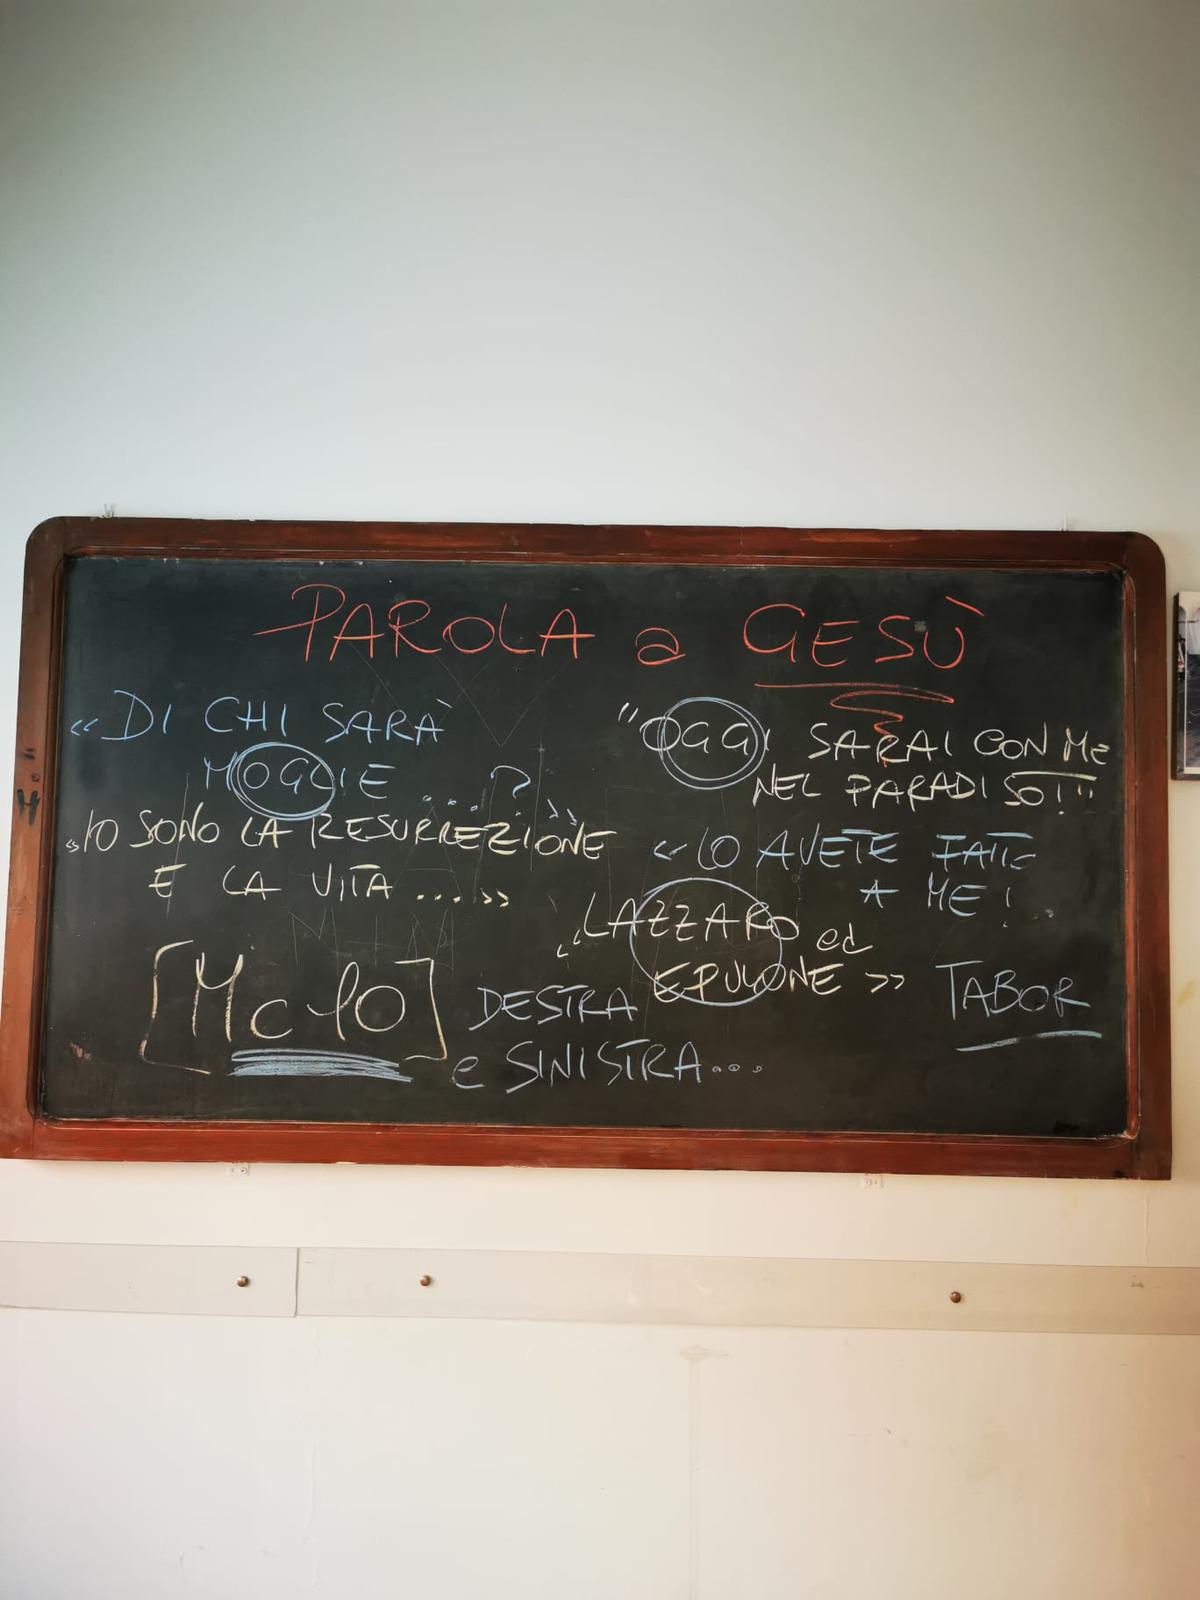 PAROLA a GESÙ
«DI CHI SARÀ
MOGLIE ....?»
«IO SONO LA RESURREZIONE
E LA VITA ...»
[Mc 10]
DESTRA
e SINISTRA...
"OGGI SARAI CON ME
NEL PARADISO!"
«LO AVETE FATTO
A ME!
«LAZZARO ed
EPULONE»
TABOR